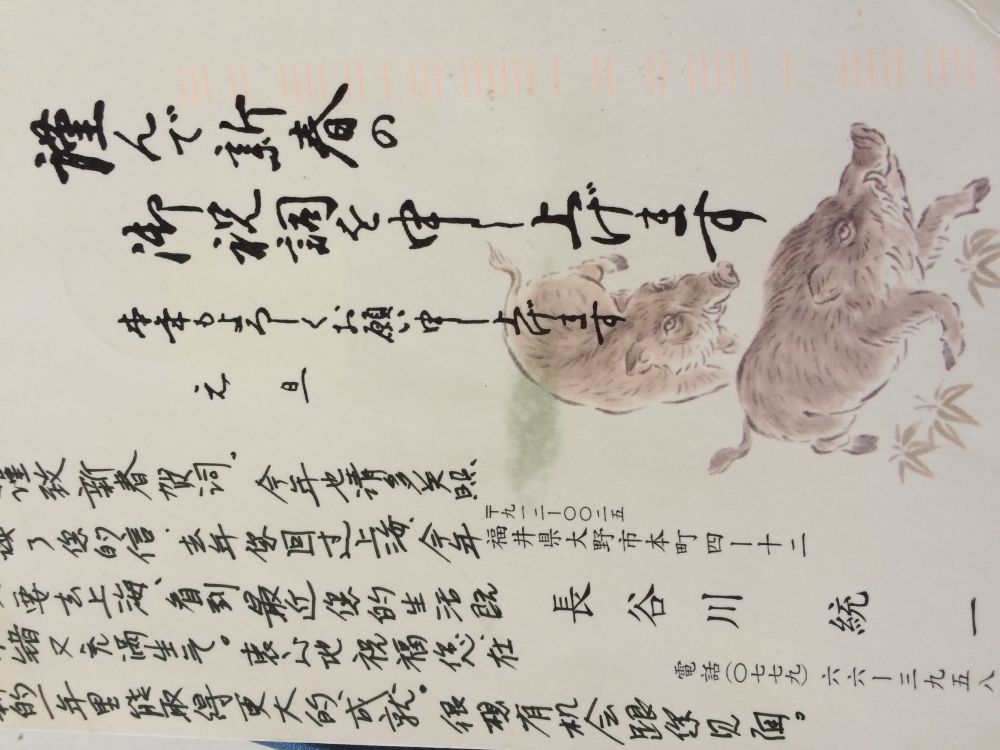 謹んで新春の
御祝詞を申し上げます
本年もよろしくお願い申し上げます
元旦
谨致新春贺词。今年也请多关照
了您的信.去年您回过上海,今年
要去上海、看到最近您的生活既
又充满生气。衷心地祝福您在
的一年里能取得更大的成就。很想有机会跟您见面。
〒九一二ー〇〇二五
福井県大野市本町四ー十二
長谷川 統一
電話(〇七七九)六六ー三九五八